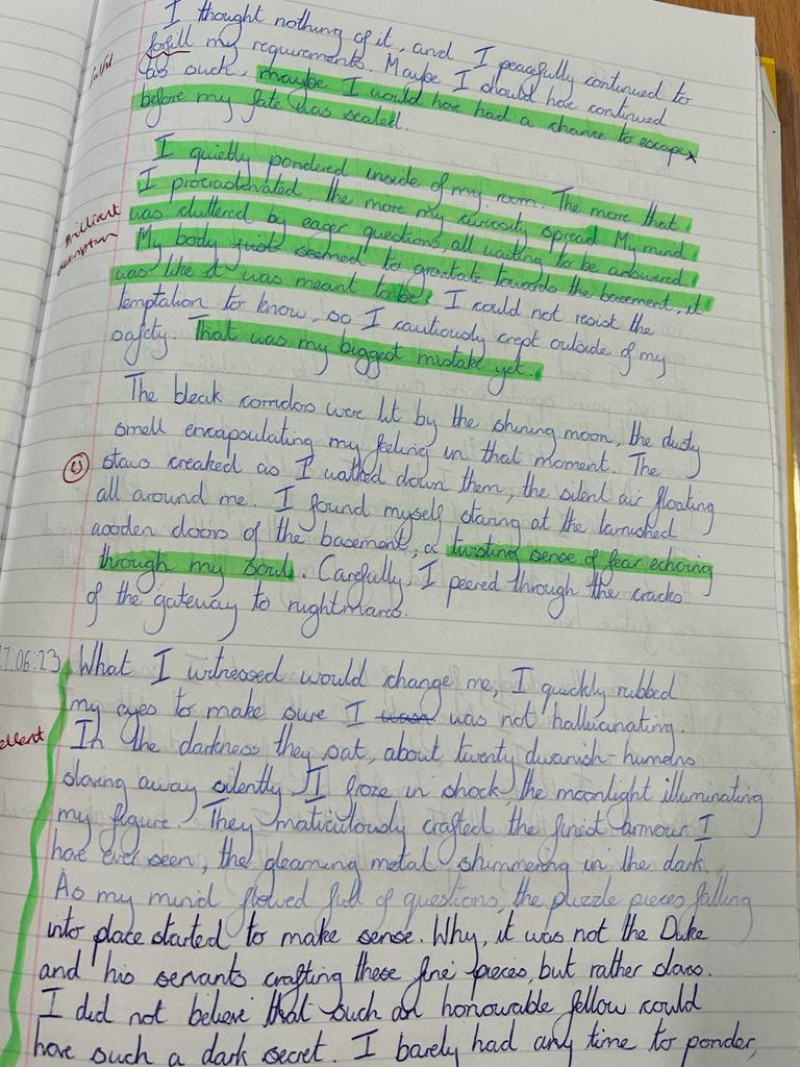 I thought nothing of it, and I peacefully continued to
fulfil
fofill my requirements. Maybe I should have continued
as such, maybe I would have had a chance to escape
before my fate was sealed.
I quietly pondered inside of my room. The more that
I procrastinated, the more my curiosity spread. My mind
Brilliant
description
was cluttered by eager questions, all waiting to be answered.
My body just seemed to gravitate towards the basement, it
was like it was meant to be. I could not resist the
temptation to know, so I cautiously crept outside of my
safety. That was my biggest mistake yet.
The bleak corridors were lit by the shining moon, the dusty
smell encapsulating my feeling in that moment. The
stairs creaked as I walked down them, the silent air floating
all around me. I found myself staring at the tarnished
wooden doors of the basement, a twisting sense of fear echoing
through my soul. Carefully, I peered through the cracks
of the gateway to nightmares.
7.06:23 What I witnessed would change me, I quickly rubbed
my eyes to make sure I was not hallucinating.
ellent
In the darkness they sat, about twenty dwarvish-humans
slaving away silently. I froze in shock, the moonlight illuminating
my figure. They maticulously crafted the finest armour I
have ever seen, the gleaming metal shimmering in the dark.
As my mind flowed full of questions, the puzzle pieces falling
into place started to make sense. Why, it was not the Duke
and his servants crafting these fine pieces, but rather slaves.
I did not believe that such an honourable fellow could
have such a dark secret. I barely had any time to ponder,